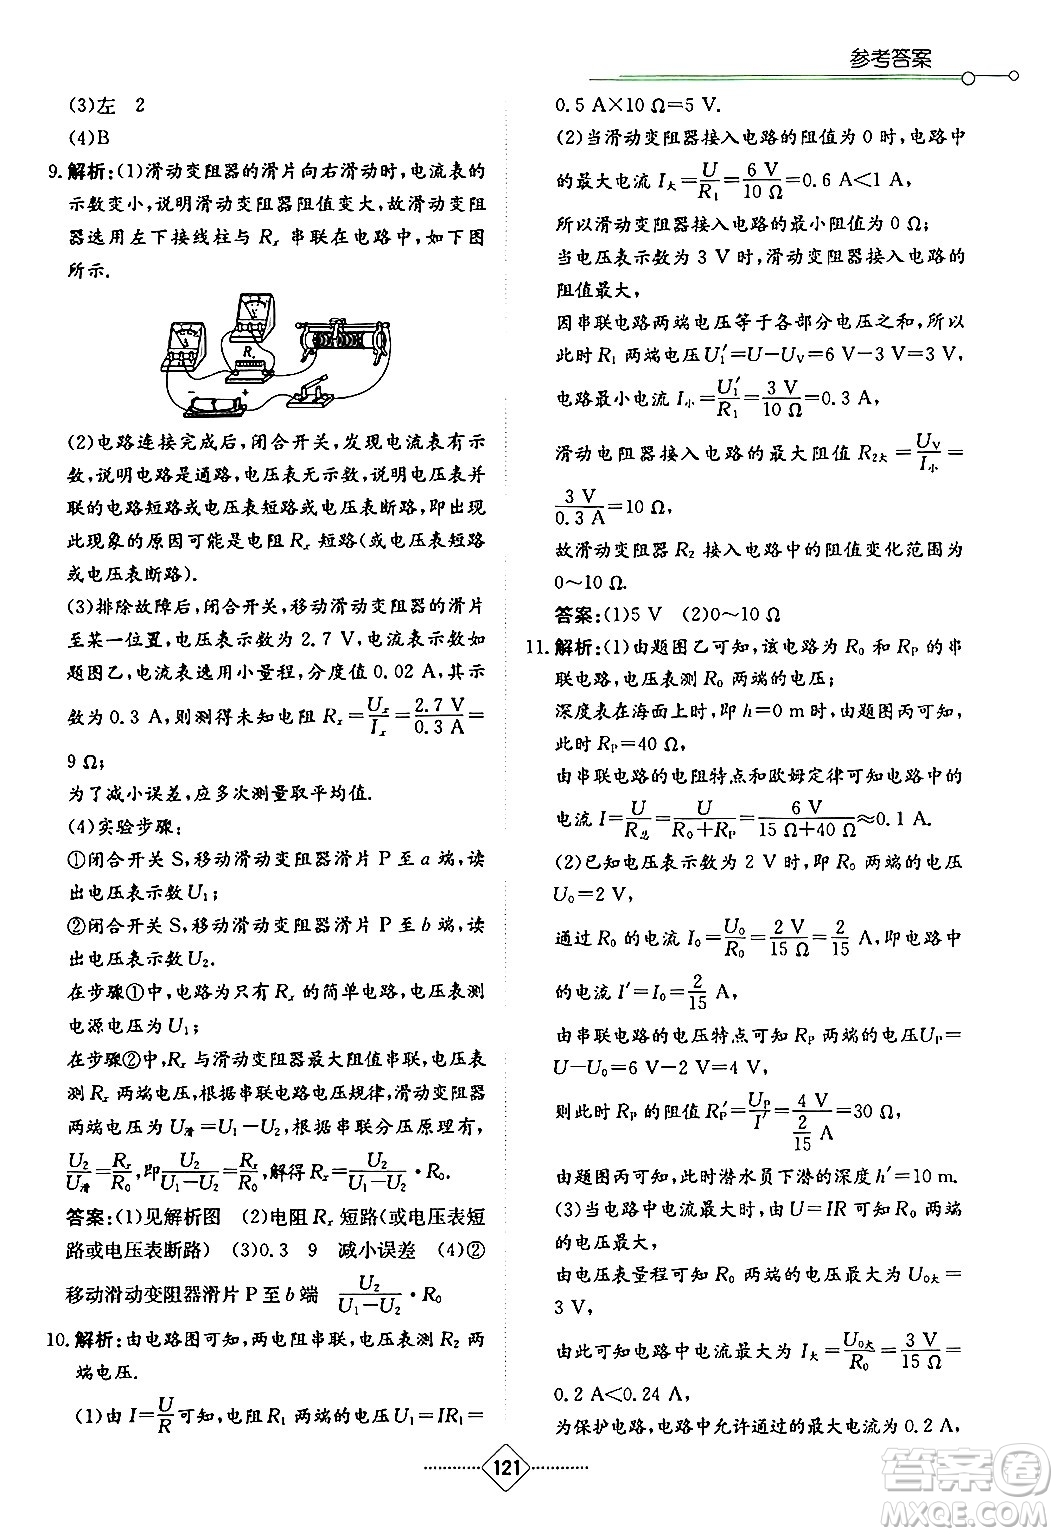 参考答案
(3)左　2
(4)B
9.解析:(1)滑动变阻器的滑片向右滑动时,电流表的
示数变小,说明滑动变阻器阻值变大,故滑动变阻
器选用左下接线柱与 Rₓ 串联在电路中,如下图
所示.
Rₓ
−　+
(2)电路连接完成后,闭合开关,发现电流表有示
数,说明电路是通路,电压表无示数,说明电压表并
联的电路短路或电压表短路或电压表断路,即出
现此现象的原因可能是电阻 Rₓ 短路(或电压表短路
或电压表断路).
(3)排除故障后,闭合开关,移动滑动变阻器的滑片
至某一位置,电压表示数为 2.7 V,电流表示数如
题图乙,电流表选用小量程,分度值 0.02 A,其示
数为 0.3 A,则测得未知电阻 Rₓ=Uₓ/Iₓ=2.7 V/0.3 A=
9 Ω;
为了减小误差,应多次测量取平均值.
(4)实验步骤:
①闭合开关 S,移动滑动变阻器滑片 P 至 a 端,读
出电压表示数 U₁;
②闭合开关 S,移动滑动变阻器滑片 P 至 b 端,读
出电压表示数 U₂.
在步骤①中,电路为只有 Rₓ 的简单电路,电压表测
电源电压为 U₁;
在步骤②中,Rₓ 与滑动变阻器最大阻值串联,电压表
测 Rₓ 两端电压,根据串联电路电压规律,滑动变阻器
两端电压为 U滑=U₁−U₂,根据串联分压原理有,
U₂/U滑=Rₓ/R₀,即U₂/(U₁−U₂)=Rₓ/R₀,解得 Rₓ=U₂/(U₁−U₂)·R₀.
答案:(1)见解析图　(2)电阻 Rₓ 短路(或电压表短
路或电压表断路)　(3)0.3　9　减小误差　(4)②
移动滑动变阻器滑片 P 至 b 端　U₂/(U₁−U₂)·R₀
10.解析:由电路图可知,两电阻串联,电压表测 R₂ 两
端电压.
(1)由 I=U/R可知,电阻 R₁ 两端的电压 U₁=IR₁=
0.5 A×10 Ω=5 V.
(2)当滑动变阻器接入电路的阻值为 0 时,电路中
的最大电流 I大=U/R₁=6 V/10 Ω=0.6 A<1 A,
所以滑动变阻器接入电路的最小阻值为 0 Ω;
当电压表示数为 3 V 时,滑动变阻器接入电路的
阻值最大,
因串联电路两端电压等于各部分电压之和,所以
此时 R₁ 两端电压 U₁′=U−Uᵥ=6 V−3 V=3 V,
电路最小电流 I小=U₁′/R₁=3 V/10 Ω=0.3 A,
滑动电阻器接入电路的最大阻值 R₂大=Uᵥ/I小=
3 V/0.3 A=10 Ω,
故滑动变阻器 R₂ 接入电路中的阻值变化范围为
0～10 Ω.
答案:(1)5 V　(2)0～10 Ω
11.解析:(1)由题图乙可知,该电路为 R₀ 和 Rₚ 的串
联电路,电压表测 R₀ 两端的电压;
深度表在海面上时,即 h=0 m 时,由题图丙可知,
此时 Rₚ=40 Ω,
由串联电路的电阻特点和欧姆定律可知电路中的
电流 I=U/R总=U/(R₀+Rₚ)=6 V/(15 Ω+40 Ω)≈0.1 A.
(2)已知电压表示数为 2 V 时,即 R₀ 两端的电压
U₀=2 V,
通过 R₀ 的电流 I₀=U₀/R₀=2 V/15 Ω=2/15 A,即电路中
的电流 I′=I₀=2/15 A,
由串联电路的电压特点可知 Rₚ 两端的电压Uₚ=
U−U₀=6 V−2 V=4 V,
则此时 Rₚ 的阻值 Rₚ′=Uₚ/I′=4 V/(2/15 A)=30 Ω,
由题图丙可知,此时潜水员下潜的深度 h′=10 m.
(3)当电路中电流最大时,由 U=IR 可知 R₀ 两端
的电压最大,
由电压表量程可知 R₀ 两端的电压最大为 U₀大=
3 V,
由此可知电路中的电流最大为 I大=U₀大/R₀=3 V/15 Ω=
0.2 A<0.24 A,
为保护电路,电路中允许通过的最大电流为 0.2 A,
121
答案圈
MXQE.COM